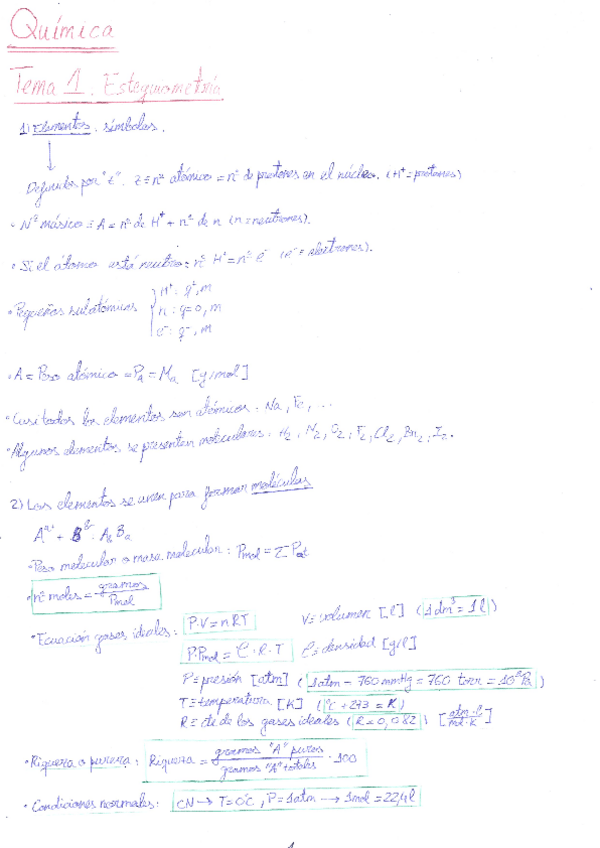 Química
Tema 1. Estequiometría
1) Elementos. símbolos.
Definidos por "Z". Z ≡ nº atómico = nº de protones en el núcleo. (H⁺ = protones)
· Nº másico ≡ A = nº de H⁺ + nº de n (n = neutrones).
· Si el átomo está neutro: nº H⁺ = nº e⁻ (e⁻ = electrones).
· Pequeñas subatómicas
H⁺: q⁺, m
n: q=0, m
e⁻: q⁻, m
· A = Peso atómico = Pa = Ma [g/mol]
· Casi todos los elementos son atómicos. Na, Fe, ...
· Algunos elementos se presentan moleculares. H₂, N₂, O₂, F₂, Cl₂, Br₂, I₂.
2) Los elementos se unen para formar moléculas
· Peso molecular o masa molecular: Pmol = Σ Pat
· nº moles = gramos / Pmol
· Ecuación gases ideales: P·V = nRT V ≡ volumen [l] (1dm³ = 1l)
P·Pmol = ρ·R·T ρ ≡ densidad [g/l]
P ≡ presión [atm] (1atm = 760 mmHg = 760 torr = 10⁵ Pa)
T ≡ temperatura [K] (ºC + 273 = K)
R ≡ cte de los gases ideales (R = 0,082) [atm·l / mol·K]
· Riqueza o pureza: Riqueza = gramos "A" puros / gramos "A" totales · 100
· Condiciones normales: CN → T = 0ºC, P = 1atm → 1mol = 22,4l
1